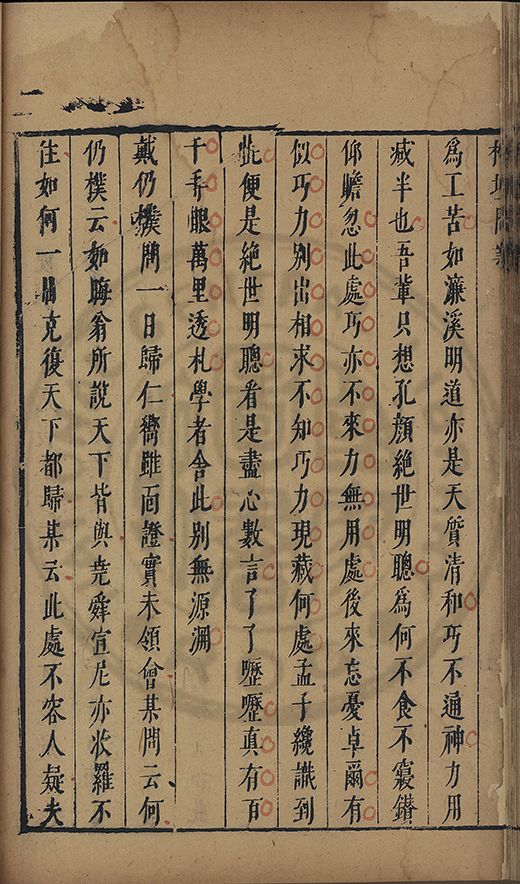 為工苦如濂溪明道亦是天質清和巧不通神力用
減半也吾輩只想孔顏絶世明聰為何不食不寢鑚
仰瞻忽此處巧亦不來力無用處後來忘憂卓爾有
似巧力別出相求不知巧力現藏何處孟子纔識到
此便是絶世明聰看是盡心數言了了歷歷真有百
千手眼萬里透札學者舍此別無源淵
戴仍樸問一日歸仁嚮雖面證實未領會某問云何
仍樸云如晦翁所說天下皆與堯舜宣尼亦收羅不
住如何一日克復天下都歸某云此處不容人疑夫